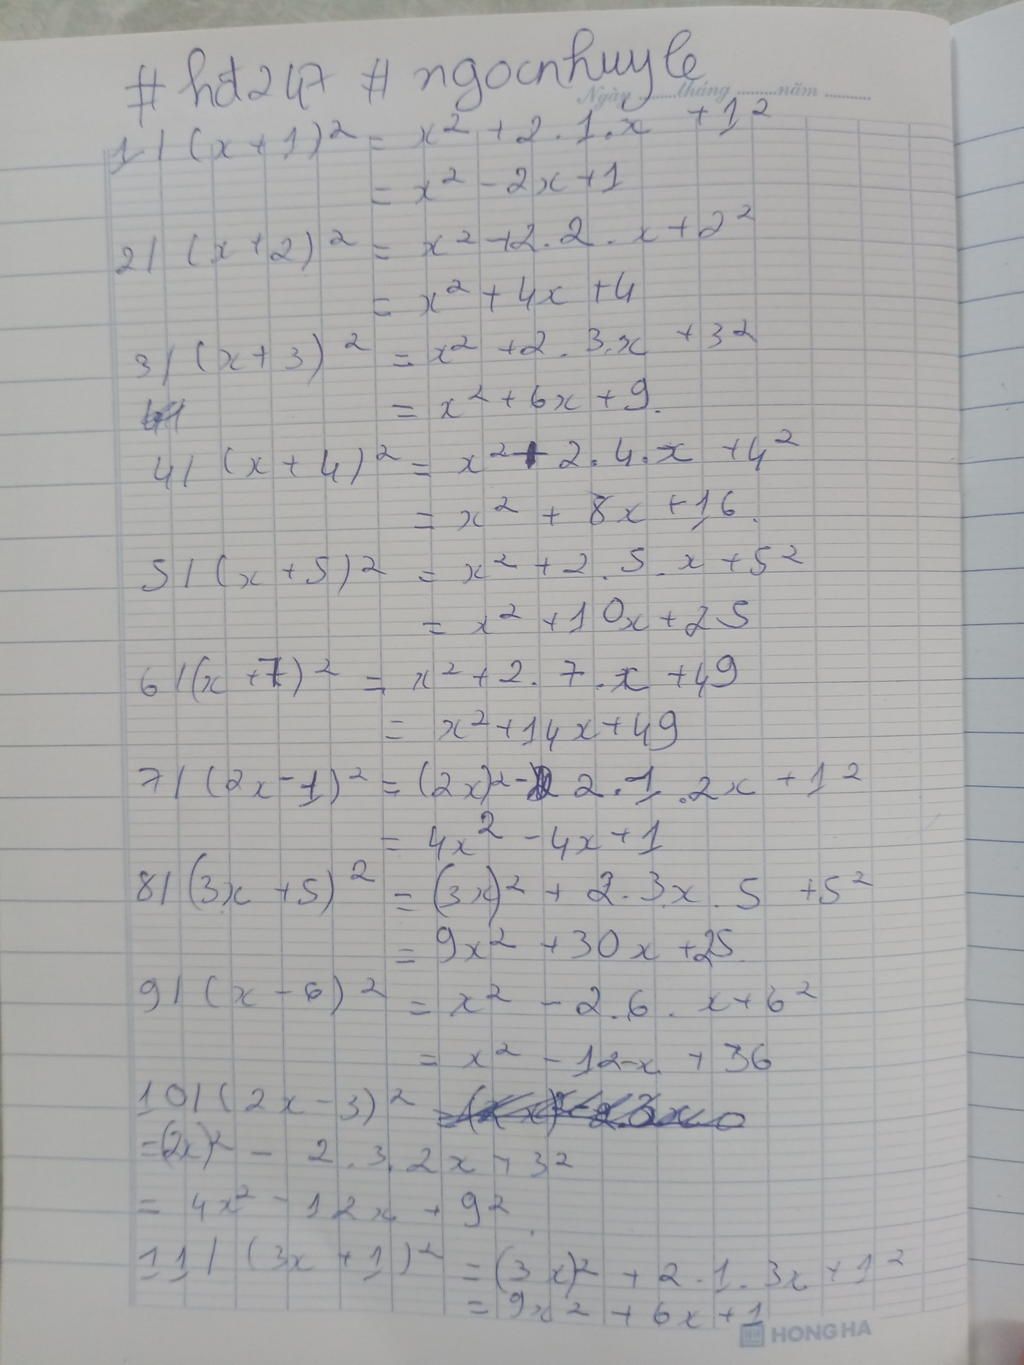 #hđ247 #ngocnhuyle
Ngày ........tháng ........năm .........
1/ (x+1)² = x² +2.1.x +1²
= x² -2x+1
2/ (x+2)² = x² +2.2.x+2²
= x² +4x +4
3/ (x+3)² = x² +2.3.x +3²
= x²+6x+9.
4/ (x+4)² = x²+2.4.x +4²
= x² + 8x +16.
5/ (x+5)² = x²+2.5.x+5²
= x² +10x+25
6/(x+7)² = x²+2.7.x+49
= x²+14x+49
7/(2x-1)² = (2x)²-2.1.2x +1²
= 4x² -4x+1
8/(3x+5)² = (3x)² + 2.3x.5 +5²
= 9x² +30x+25.
9/ (x-6)² = x² - 2.6.x+6²
= x² -12x + 36
10/(2x-3)²
=(2x)² - 2.3.2x+3²
= 4x² -12x + 9²
11/ (3x+1)² = (3x)² + 2.1.3x+1²
= 9x² + 6x +1
HONG HA